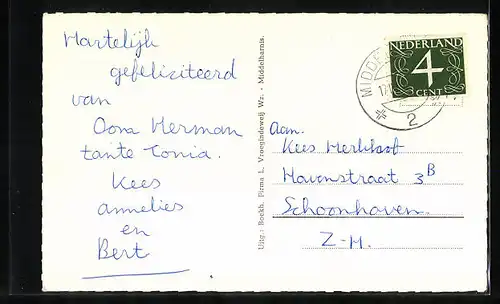 Hartelijk
gefeliciteerd
van
Oom Herman
tante Tonia.
Kees
annelies
en
Bert
Uitg.: Boekh. Firma L. Vroegindeweij Wz. - Middelharnis.
NEDERLAND
4
CENT
MIDDE
2
Aan.
Kees Merkhof
Havenstraat 3B
Schoonhoven
Z-H.